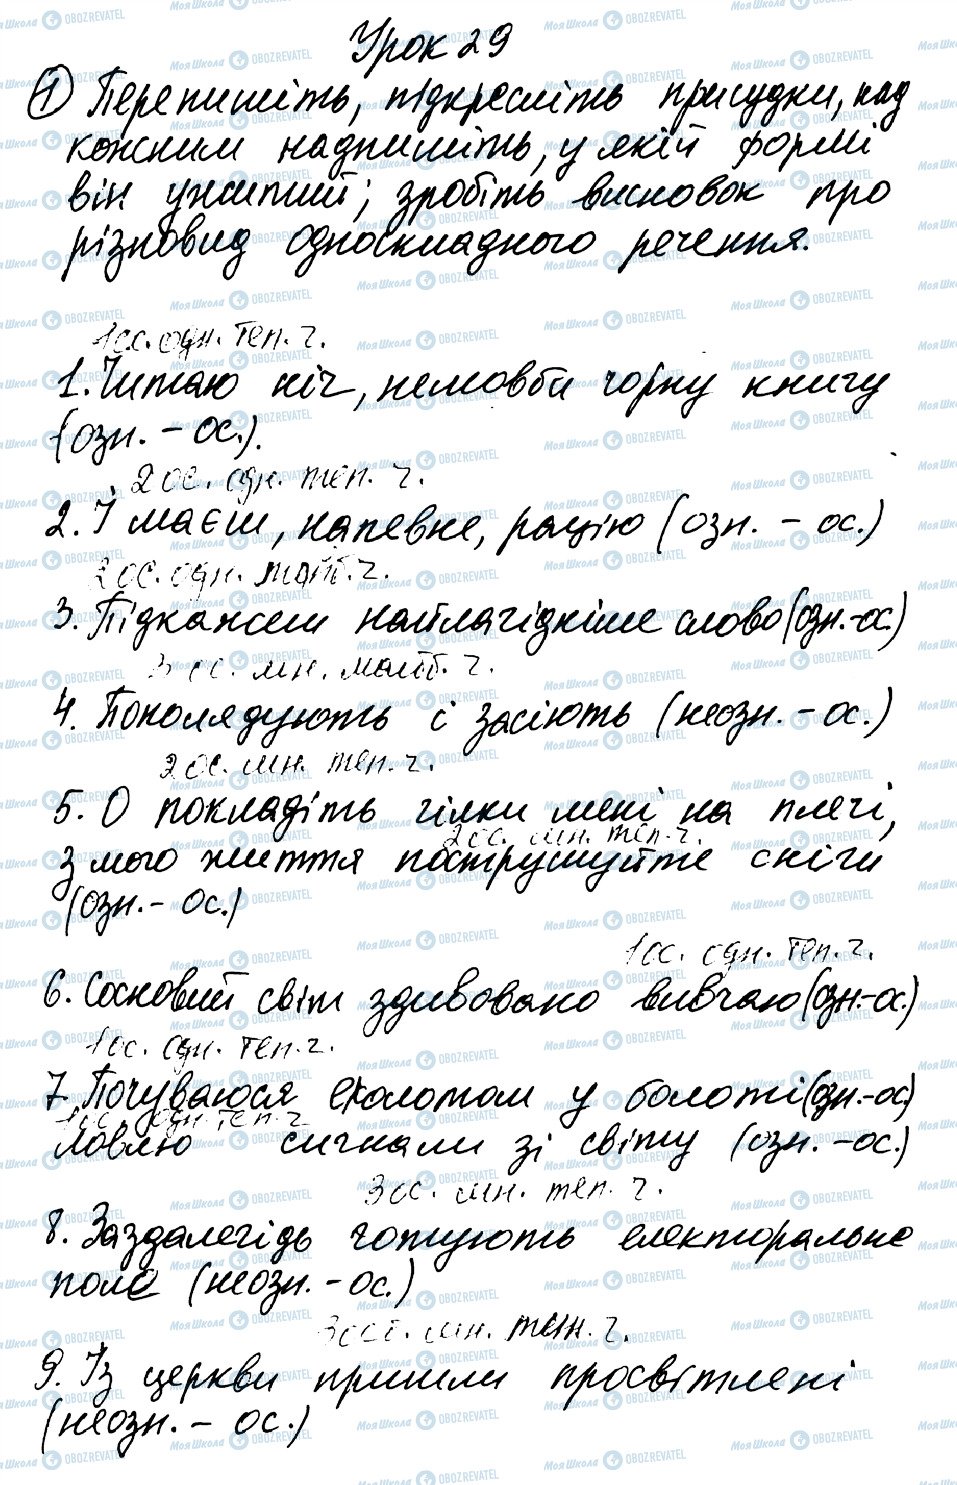 Урок 29
① Перепишіть, підкресліть присудки, над
кожним надпишіть, у якій формі
він ужитий; зробіть висновок про
різновид односкладного речення.
1 ос. одн. теп. ч.
1. Читаю ніч, немовби чорну книгу
(озн. – ос.).
2 ос. одн. теп. ч.
2. І маєш, напевне, рацію (озн. – ос.)
2 ос. одн. майб. ч.
3. Підкажеш найлагідніше слово (озн.-ос.)
3 ос. мн. майб. ч.
4. Поколядують і засіють (неозн. – ос.)
2 ос. мн. теп. ч.
5. О покладіть гілки мені на плечі,
2 ос. мн. теп. ч.
з мого життя пострушуйте сніги
(озн. – ос.)
1 ос. одн. теп. ч.
6. Сосновий світ здивовано вивчаю (озн.-ос.)
1 ос. одн. теп. ч.
7. Почуваюся ехолотом у болоті (озн.-ос)
1 ос. одн. теп. ч
ловлю сигнали зі світу (озн. – ос.)
3 ос. мн. теп. ч.
8. Заздалегідь готують електоральне
поле (неозн. – ос.)
мн. ч.
9. Із церкви прийшли просвітлені
(неозн. – ос.)